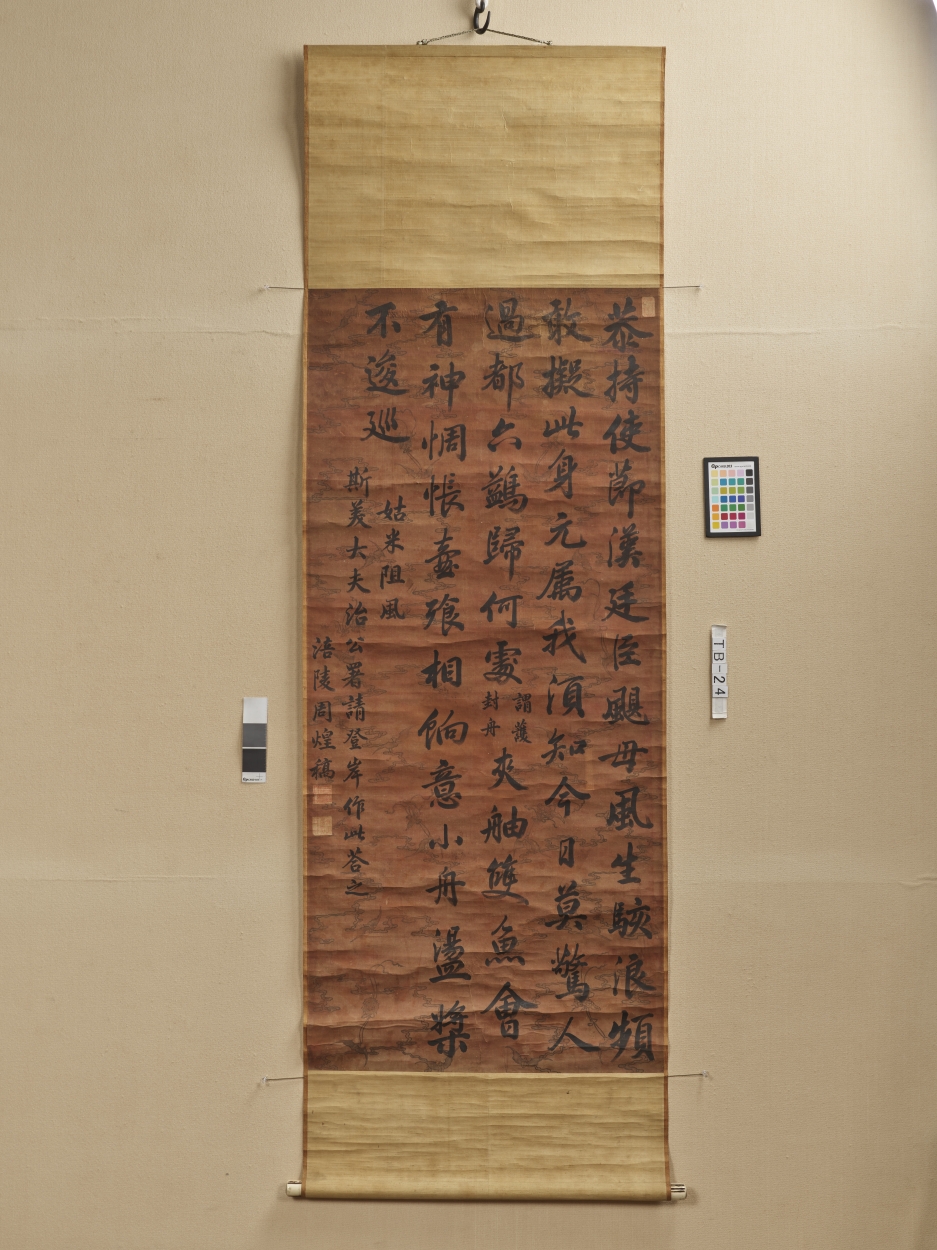 恭持使節漢廷臣颶母風生駭浪頻
敢擬此身元屬我須知今日莫驚人
過都六鷁歸何處
謂護
封舟
夾舳雙魚會
有神惆悵壺飱相餉意小舟盪槳
不逡巡
姑米阻風
斯美大夫治公署請登岸作此荅之
涪陵周煌稿
TB-24